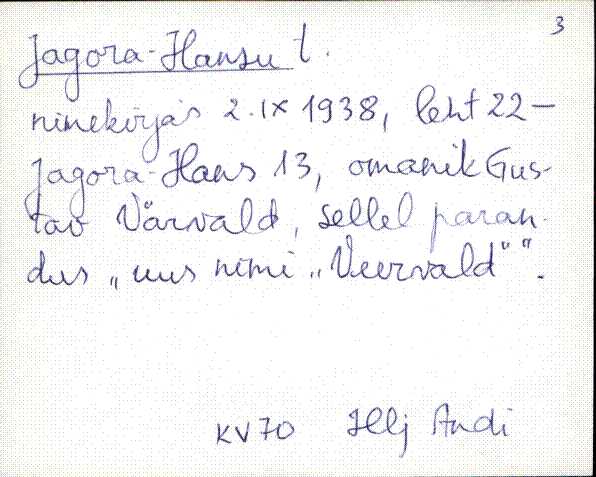 3
Jagora-Hansu t.
nimekirjas 2.IX 1938, leht 22 –
Jagora-Hans 13, omanik Gus-
tav Värvald, sellel paran-
dus „uus nimi „Veervald“ “.
KV70 Hlj Andi